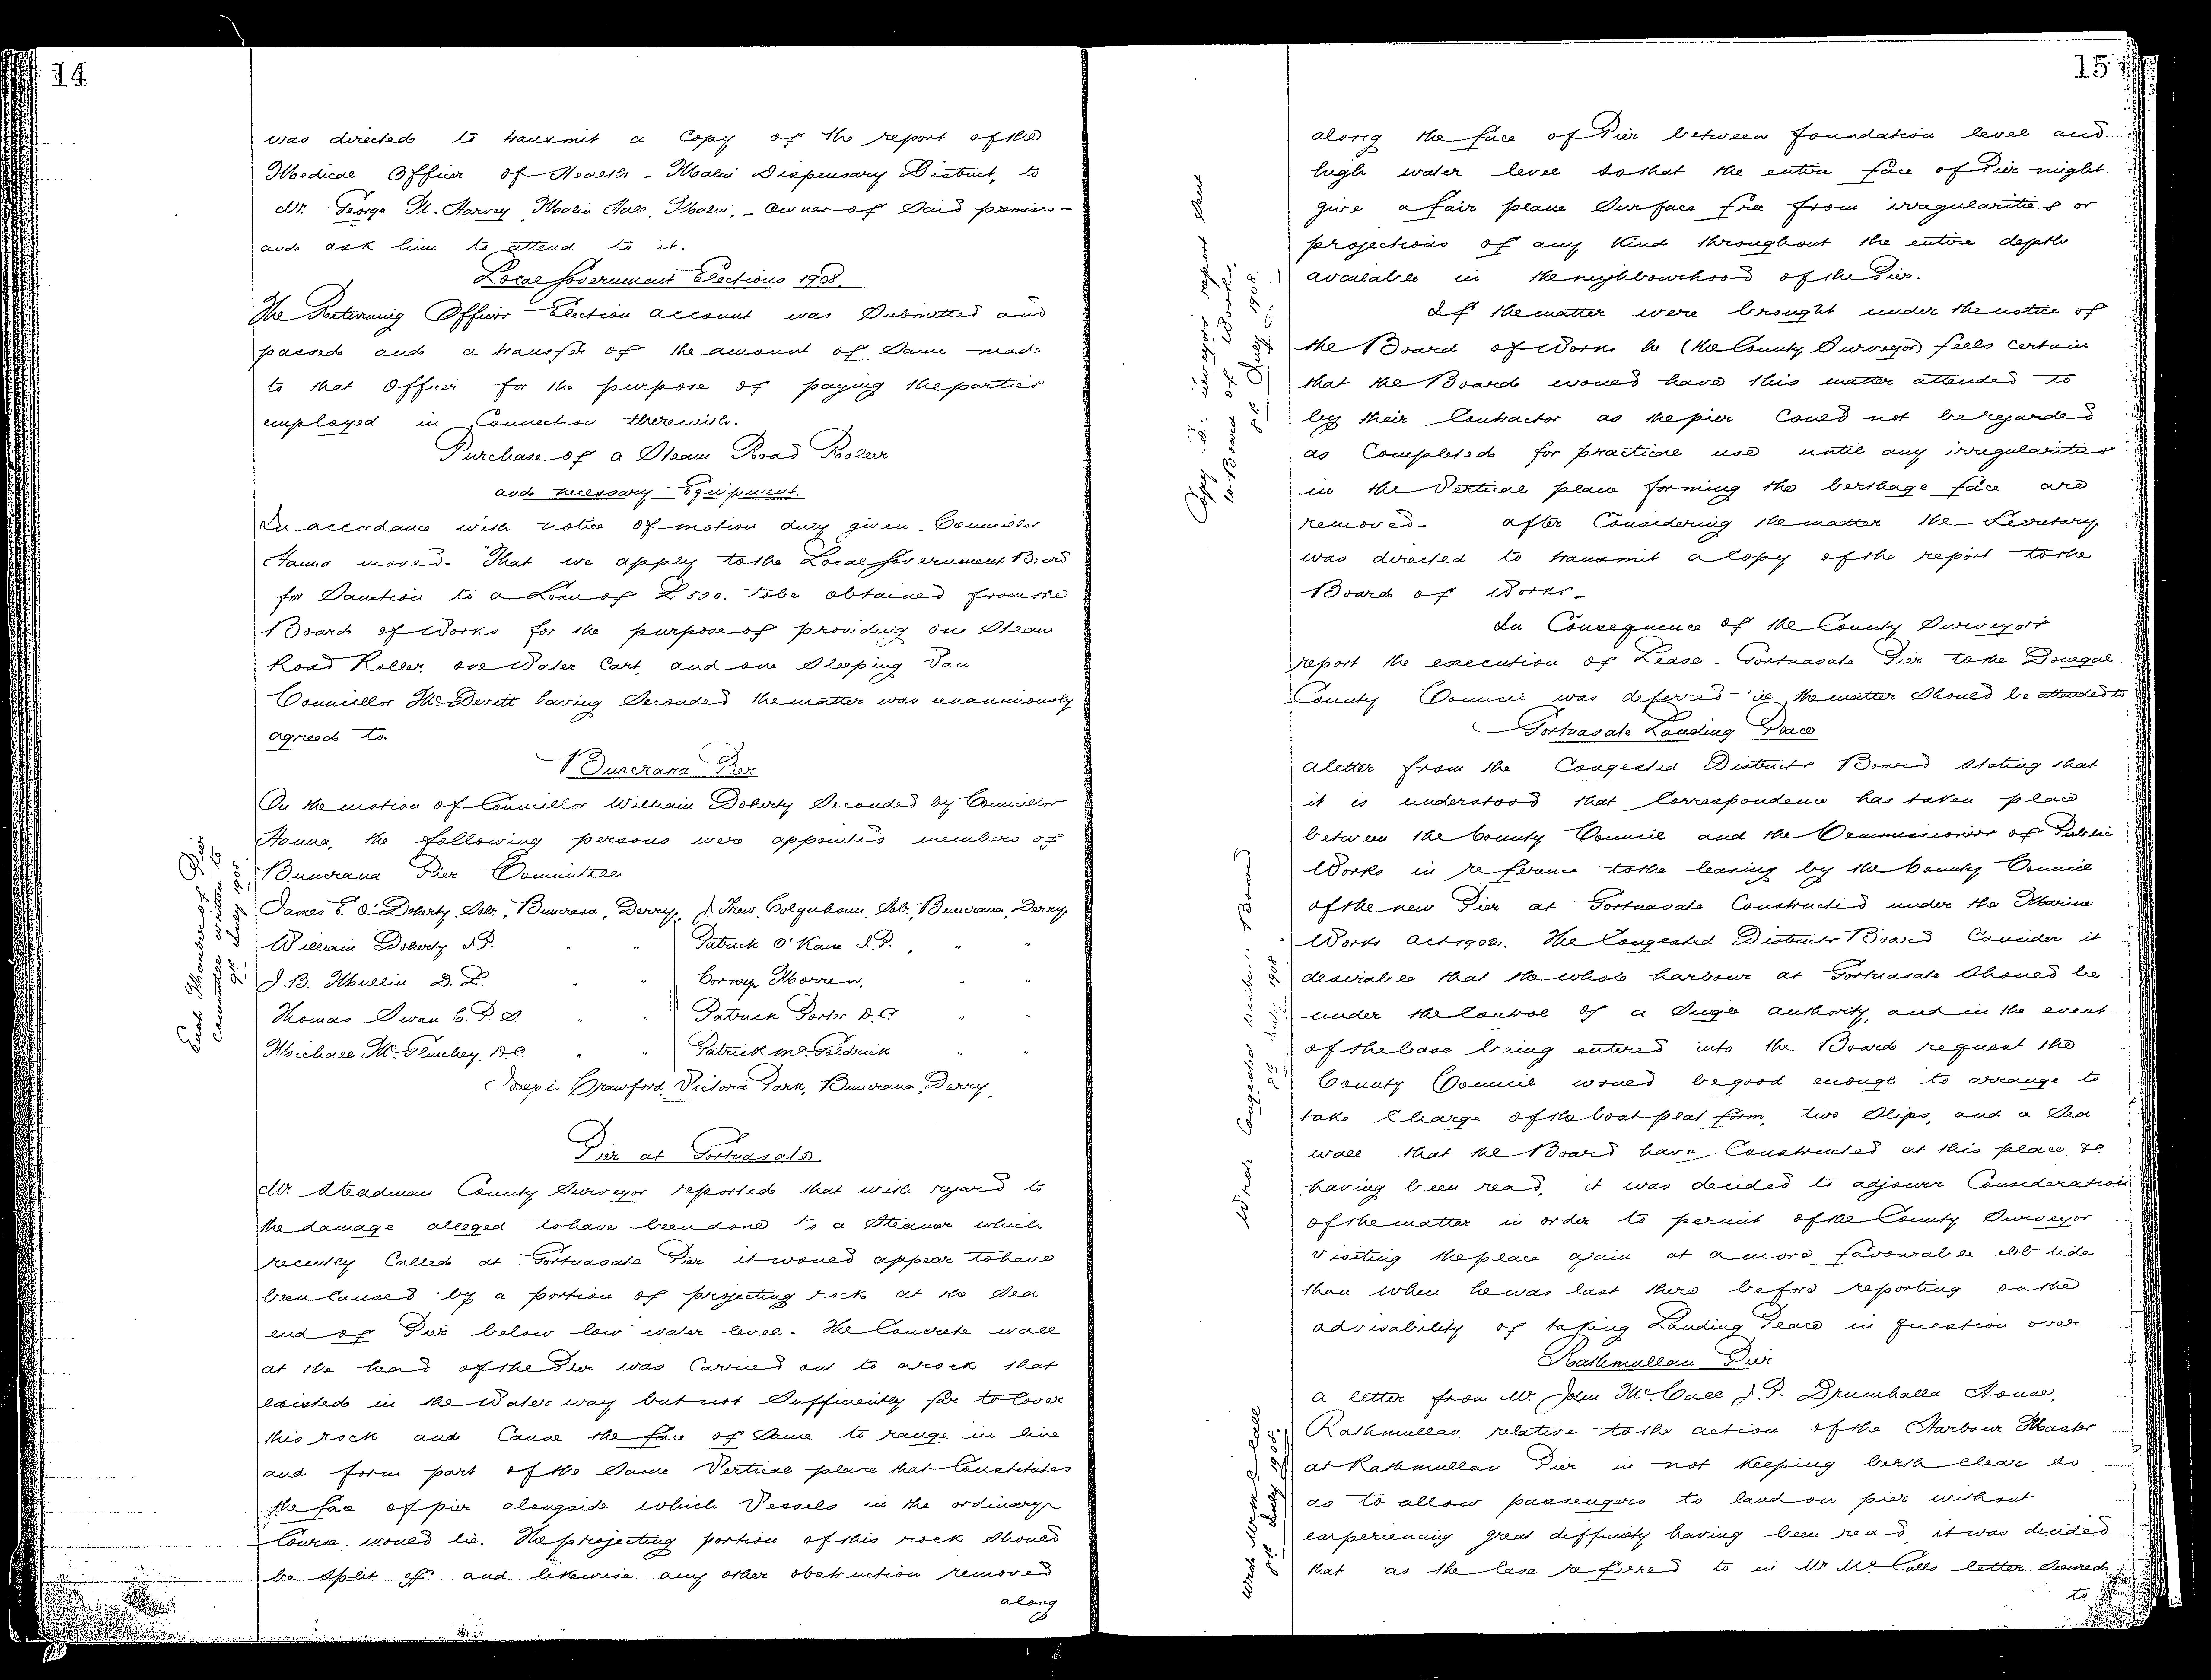 14
was directed to transmit a Copy of the report of the
Medical Officer of Health - Malin Dispensary District, to
Mr. George M. Harvey, Malin Hall, Malin, - Owner of Said premises -
and ask him to attend to it.
Local Government Elections 1908.
The Returning Officers Election account was Submitted and
passed and a transfer of the amount of Same made
to that Officer for the purpose of paying the parties
employed in Connection therewith.
Purchase of a Steam Road Roller
and necessary Equipment.
In accordance with notice of motion duly given Councillor
Hanna moved - That we apply to the Local Government Board
for Sanction to a Loan of £500. to be obtained from the
Board of Works for the purpose of providing one Steam
Road Roller, one Water Cart, and one Sleeping Van
Councillor McDevitt having Seconded the matter was unanimously
agreed to.
Buncrana Pier
On the motion of Councillor William Doherty Seconded by Councillor
Hanna, the following persons were appointed members of
Buncrana Pier Committee
Each Member of Pier
Committee written to
9th July 1908.
James E. O'Doherty, Solr., Buncrana, Derry, J. Trew Colquhoun, Solr. Buncrana, Derry,
William Doherty J.P. " " Patrick O'Kane J.P., " "
J. B. Mullin D.L. " " Corney Morren, " "
Thomas Swan C.P.S. " " Patrick Porter D.C. " "
Michael McGlinchey, D.C. " " Patrick McGoldrick " "
Joseph Crawford, Victoria Park, Buncrana, Derry.
Pier at Portnasale
Mr. Steadman County Surveyor reported that with regard to
the damage alleged to have been done to a Steamer which
recently Called at Portnasale Pier it would appear to have
been Caused by a portion of projecting rock at the Sea
end of Pier below low water level. The Concrete wall
at the head of the Pier was Carried out to a rock that
existed in the Water way but not Sufficiently far to Cover
this rock and Cause the face of Same to range in line
and form part of the Same Vertical plane that Constitutes
the face of pier alongside which Vessels in the ordinary
Course would lie. The projecting portion of this rock Should
be Split off and likewise any other obstruction removed
along
15
along the face of Pier between foundation level and
high water level so that the entire face of Pier might
give a fair plane Surface free from irregularities or
projections of any Kind throughout the entire depth
available in the neighbourhood of the Pier.
Copy Co: Surveyors report sent
to Board of Works.
8th July 1908.
If the matter were brought under the notice of
the Board of Works he (the County Surveyor) feels Certain
that the Board would have this matter attended to
by their Contractor as the pier Could not be regarded
as Completed for practical use until any irregularities
in the Vertical plane forming the berthage face are
removed - after Considering the matter the Secretary
was directed to transmit a Copy of the report to the
Board of Works -
In Consequence of the County Surveyors
report the execution of Lease - Portnasale Pier to the Donegal
County Council was deferred - 'til the matter Should be attended to
Portnasale Landing Place
A letter from the Congested Districts Board Stating that
it is understood that Correspondence has taken place
between the County Council and the Commissioners of Public
Works in reference to the leasing by the County Council
of the new Pier at Portnasale Constructed under the Marine
Works Act 1902. The Congested Districts Board Consider it
desirable that the whole harbour at Portnasale Should be
under the Control of a Single Authority, and in the event
of the lease being entered into the Board request the
County Council would be good enough to arrange to
take Charge of the boat platform, two Slips, and a Sea
wall that the Board have Constructed at this place, &c
having been read, it was decided to adjourn Consideration
of the matter in order to permit of the County Surveyor
Visiting the place again at a more favourable ebb tide
than when he was last there before reporting on the
advisability of taking Landing Place in question over
Wrote Congested Districts Board
8th July 1908
Rathmullan Pier
A letter from Mr. John McCall J.P. Drumhalla House,
Rathmullan, relative to the action of the Harbour Master
at Rathmullan Pier in not Keeping berth clear so
as to allow passengers to land on pier without
experiencing great difficulty having been read, it was decided
that as the Case referred to in Mr McCalls letter Seemed
to
Wrote Mr McCall
8th July 1908.